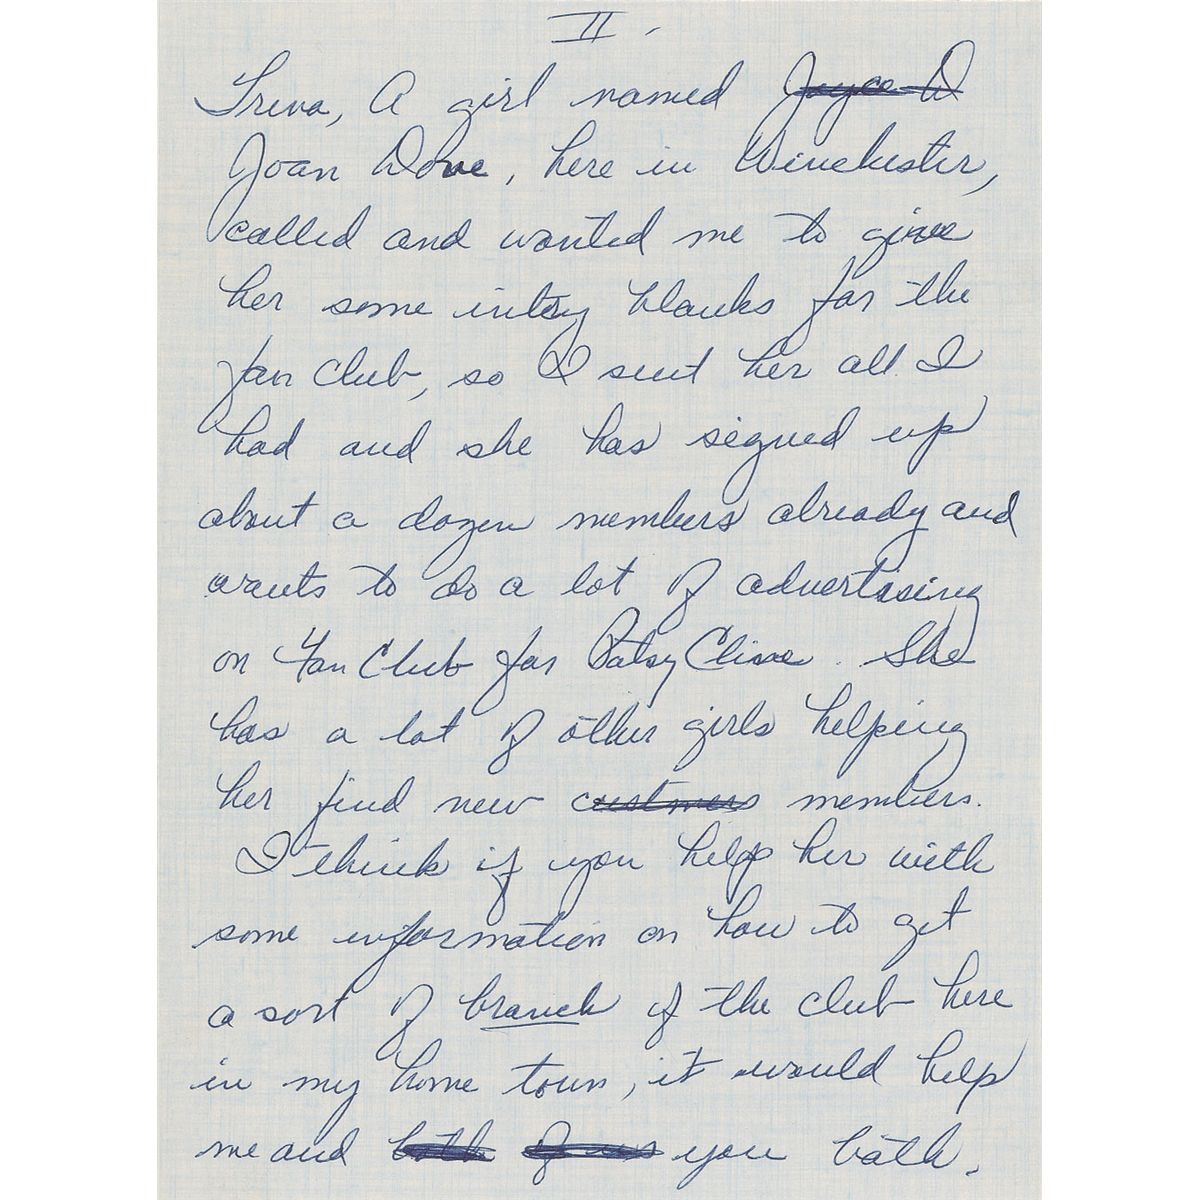 II.
Treva, A girl named Joyce D
Joan Dove, here in Winchester,
called and wanted me to give
her some intry blanks for the
fan Club, so I sent her all I
had and she has signed up
about a dozen members already and
wants to do a lot of advertising
on Fan Club for Patsy Cline. She
has a lot of other girls helping
her find new custmers members.
I think if you help her with
some information on how to get
a sort of branch of the club here
in my home town, it would help
me and both of us you both.